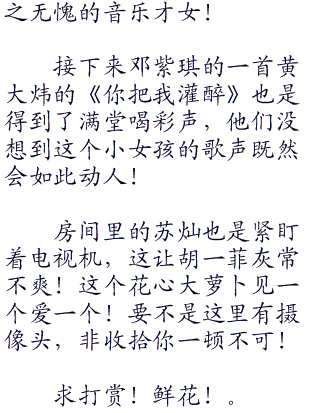 之无愧的音乐才女！
接下来邓紫琪的一首黄
大炜的《你把我灌醉》也是
得到了满堂喝彩声，他们没
想到这个小女孩的歌声既然
会如此动人！
房间里的苏灿也是紧盯
着电视机，这让胡一菲灰常
不爽！这个花心大萝卜见一
个爱一个！要不是这里有摄
像头，非收拾你一顿不可！
求打赏！鲜花！。